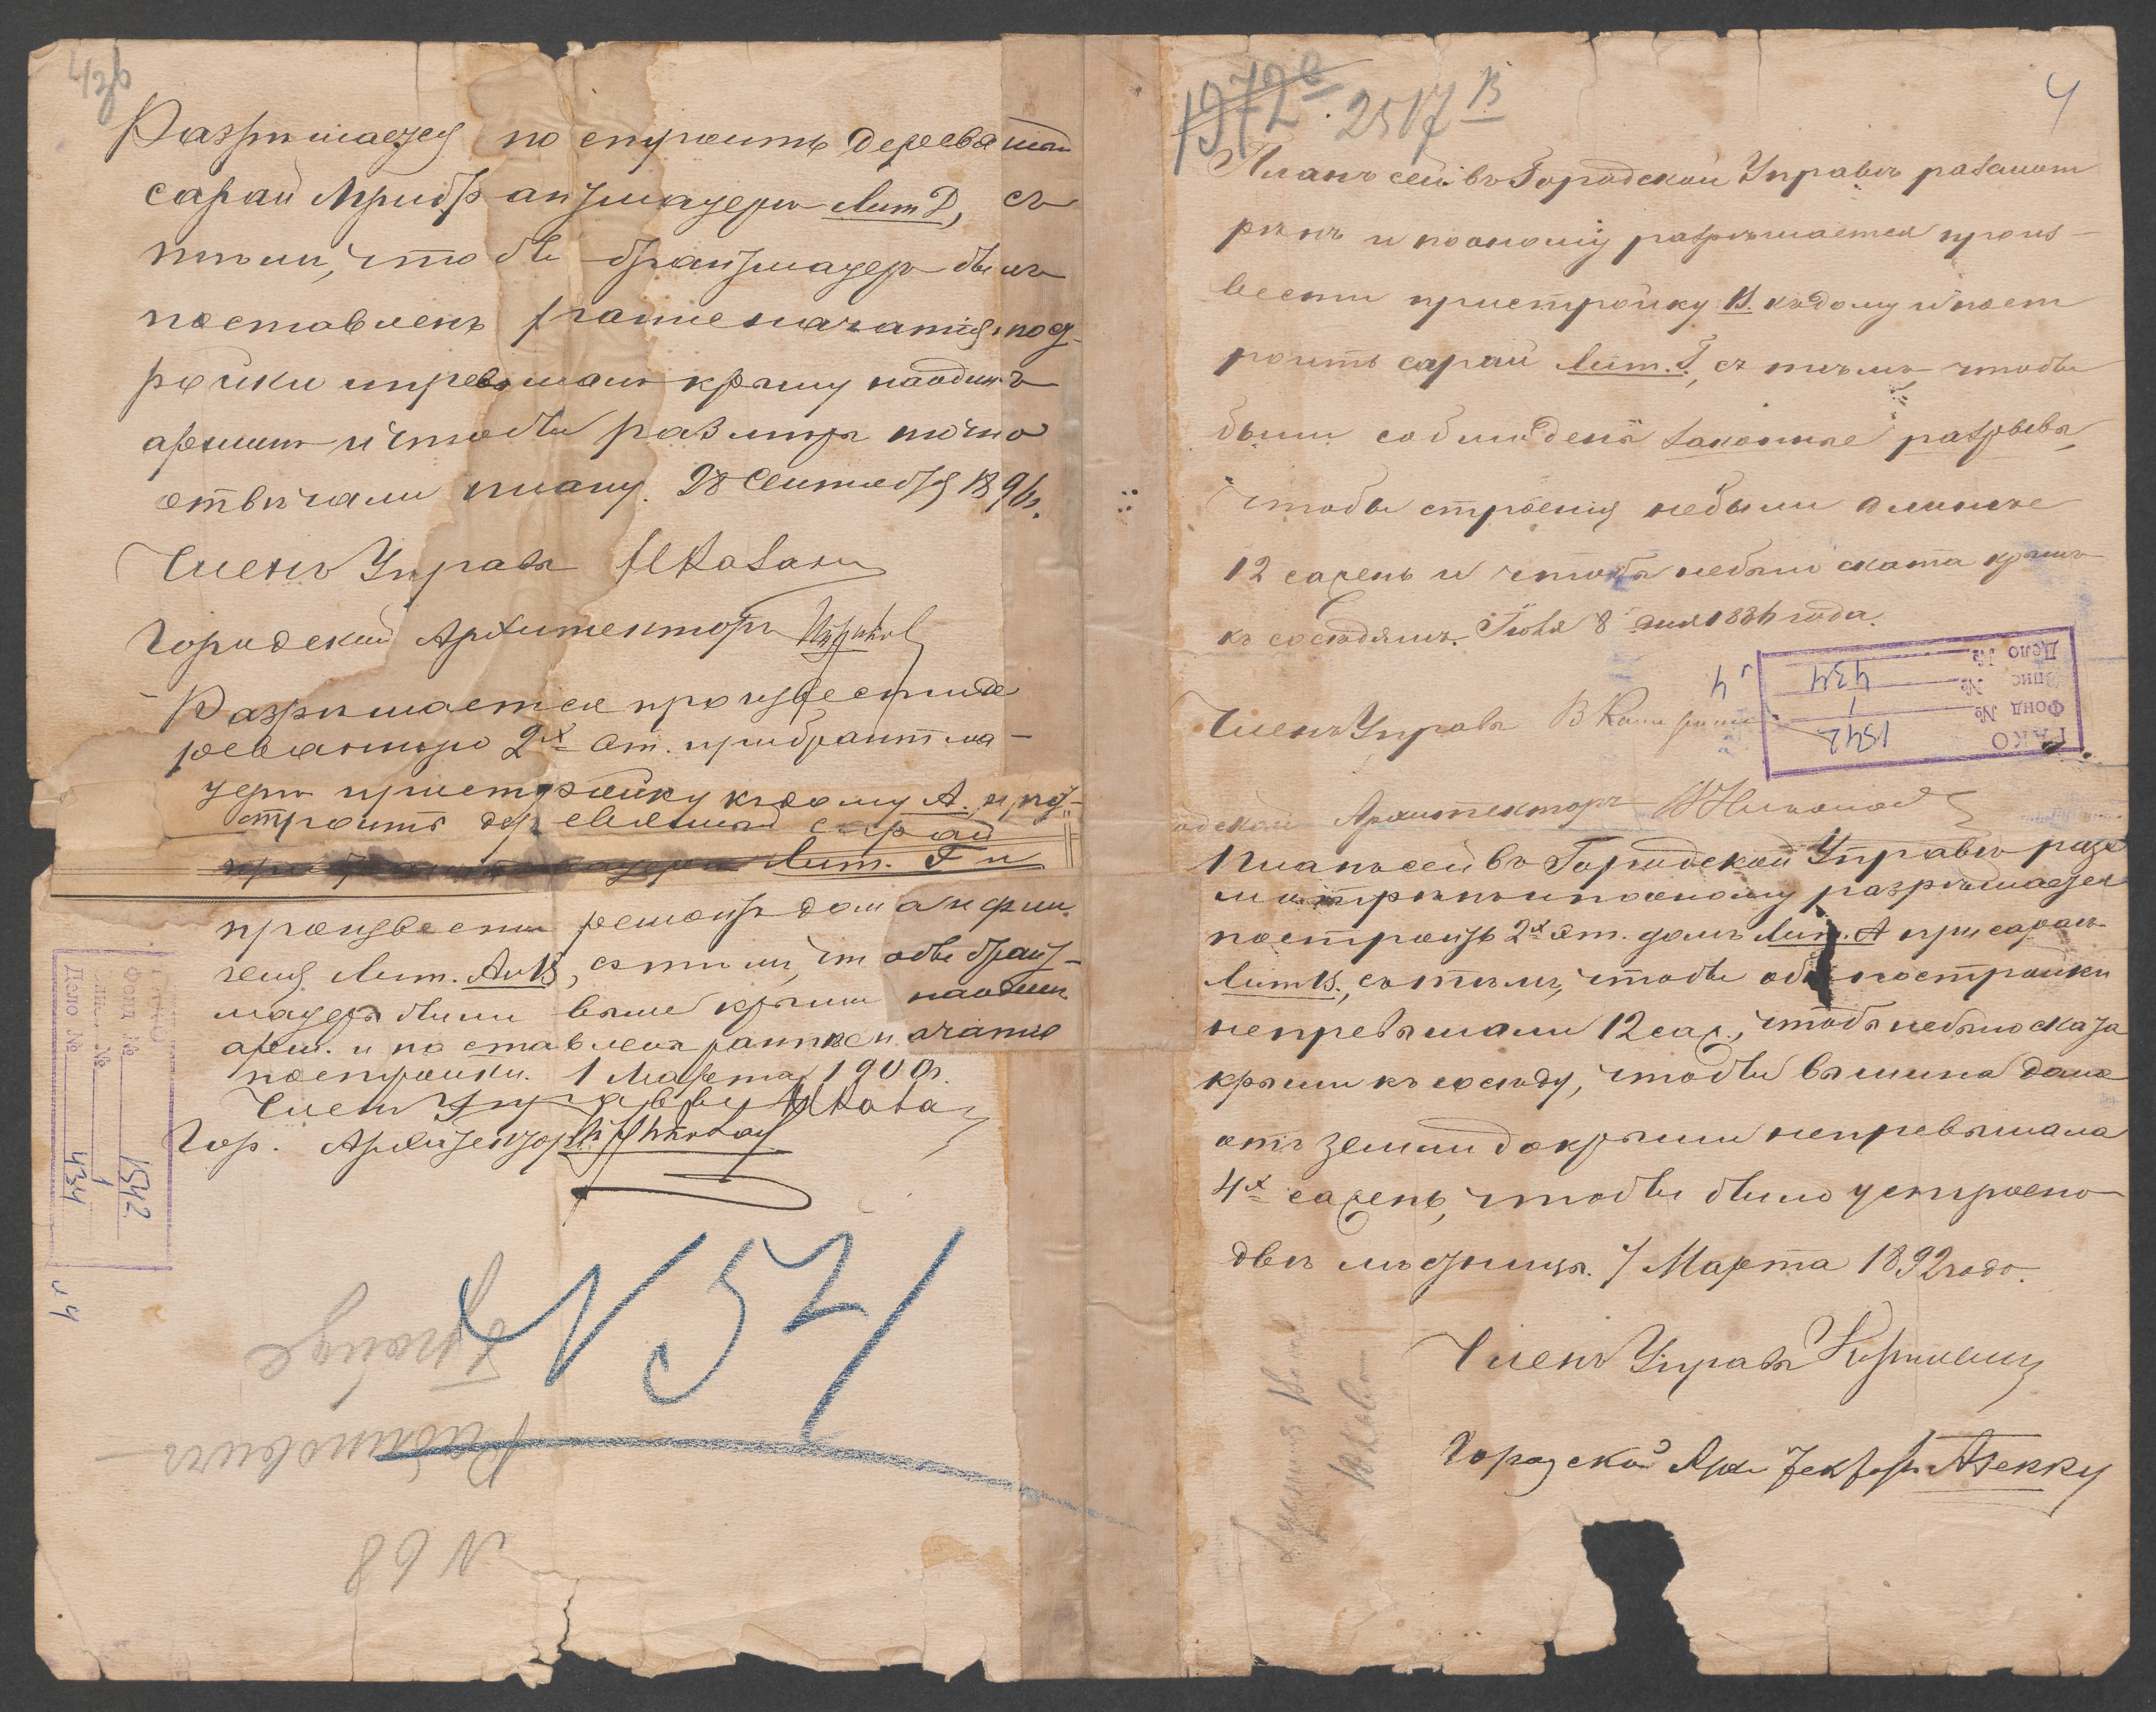 Разрѣшается построить деревянный
сарай Лит Д, съ
тѣмъ, чтобы брантмауеръ былъ
поставленъ ранѣе начатія пост-
ройки и превышалъ крышу на одинъ
аршинъ и чтобы размѣръ точно
отвѣчали плану. 28 Сентября 189
Членъ Управы
Городской Архитекторъ
Разрѣшается произвести де
ревянную 2х эт. при брантма-
уерѣ пристройку къ дому А. и по-
строить деревянный сарай
Лит. Г и
произвести ремонтъ дома и фли
геля Лит. А и В, съ тѣмъ, чтобы брант-
мауеры были выше крыши на одинъ
арш. и поставлены ранѣе начатія
постройки. 1 Марта 1900 г.
Членъ Управы
Гор. Архитекторъ
ГАКО
Фонд № 1542
Опис № 1
Дело № 434
л 4
N 57
Рабиновичъ
N 68
1972 е 2517 В
4
Планъ сей въ Городской Управѣ разсмот
рѣнъ и по оному разрѣшается произ-
вести пристройку В. къ дому и пост
роить сарай Лит. Г, съ тѣмъ чтобы
были соблюдены законные разрывы,
чтобы строенія не были длиннѣе
12 сажень и чтобы не было ската крышъ
къ сосѣдямъ. 8 дня 1886 года.
Членъ Управы
ГАКО
Фонд № 1542
Опис № 1
Дело № 434
л 4
одской Архитекторъ
Планъ сей въ Городской Управѣ разс
мотрѣнъ и по оному разрѣшается
построить 2х эт. домъ Лит. А при сараѣ
Лит В., съ тѣмъ, чтобы обѣ постройки
не превышали 12 саж., чтобы не было ската
крыши къ сосѣду, чтобы вышина дома
отъ земли до крыши не превышала
4х сажень, чтобы было устроено
двѣ лѣстницы. 7 Марта 1892 года.
Членъ Управы
Городской Архитекторъ